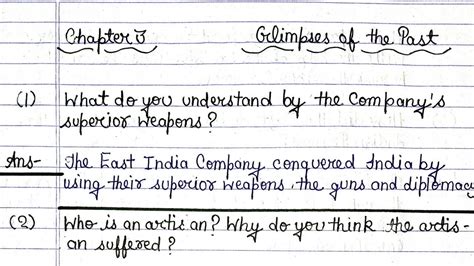 Chapter 3 Glimpses of the Past
(1) What do you understand by the Company's
superior weapons?
Ans- The East India Company conquered India by
using their superior weapons, the guns and diplomacy
(2) Who is an artisan? Why do you think the artis-
an suffered?